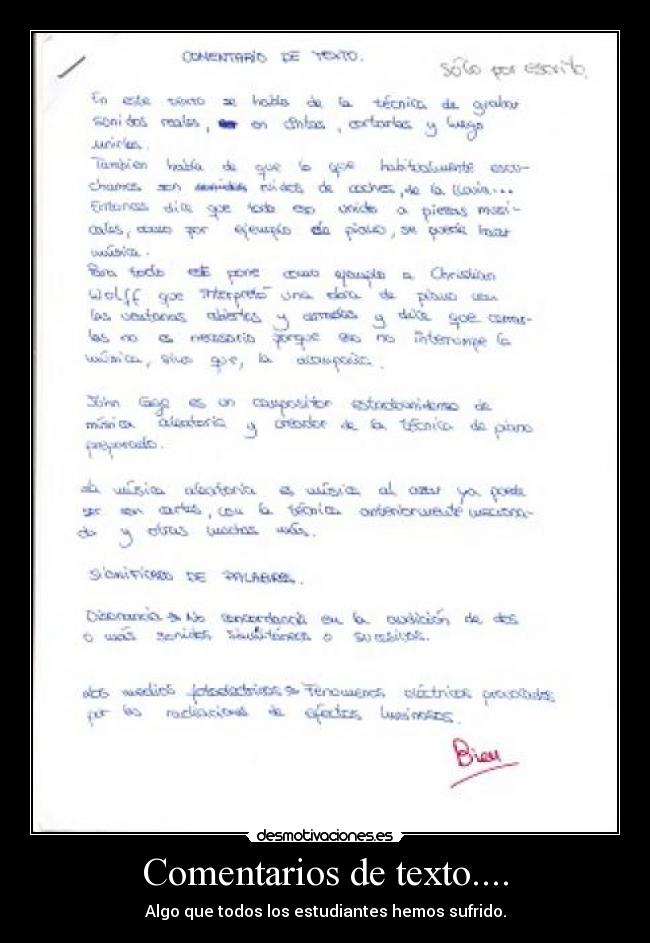 COMENTARIO DE TEXTO.
sólo por escrito.
En este texto se habla de la técnica de grabar
sonidos reales, en cintas, cortarlas y luego
unirlas.
Tambien habla de que lo que habitualmente escu-
chamos son ruidos de coches, de la lluvia...
Entonces dice que todo eso unido a piezas musi-
cales, como por ejemplo de piano, se puede hacer
música.
Para todo este pone como ejemplo a Christian
Wolff que interpretó una obra de piano con
las ventanas abiertas y y dice que cerrar-
las no es necesario porque eso no interrumpe la
música, sino que, la acompaña.
John Cage es un compositor estadounidense de
música aleatoria y creador de la técnica de piano
preparado.
La música aleatoria es música al azar ya puede
ser con cartas, con la técnica anteriormente menciona-
da y otras muchas más.
SIGNIFICADO DE PALABRAS.
Disonancia No concordancia en la audición de dos
o más sonidos simultáneos o sucesivos.
Los medios Fenomenos eléctricos provocados
por las radiaciones de efectos luminosos.
Bien
desmotivaciones.es
Comentarios de texto....
Algo que todos los estudiantes hemos sufrido.